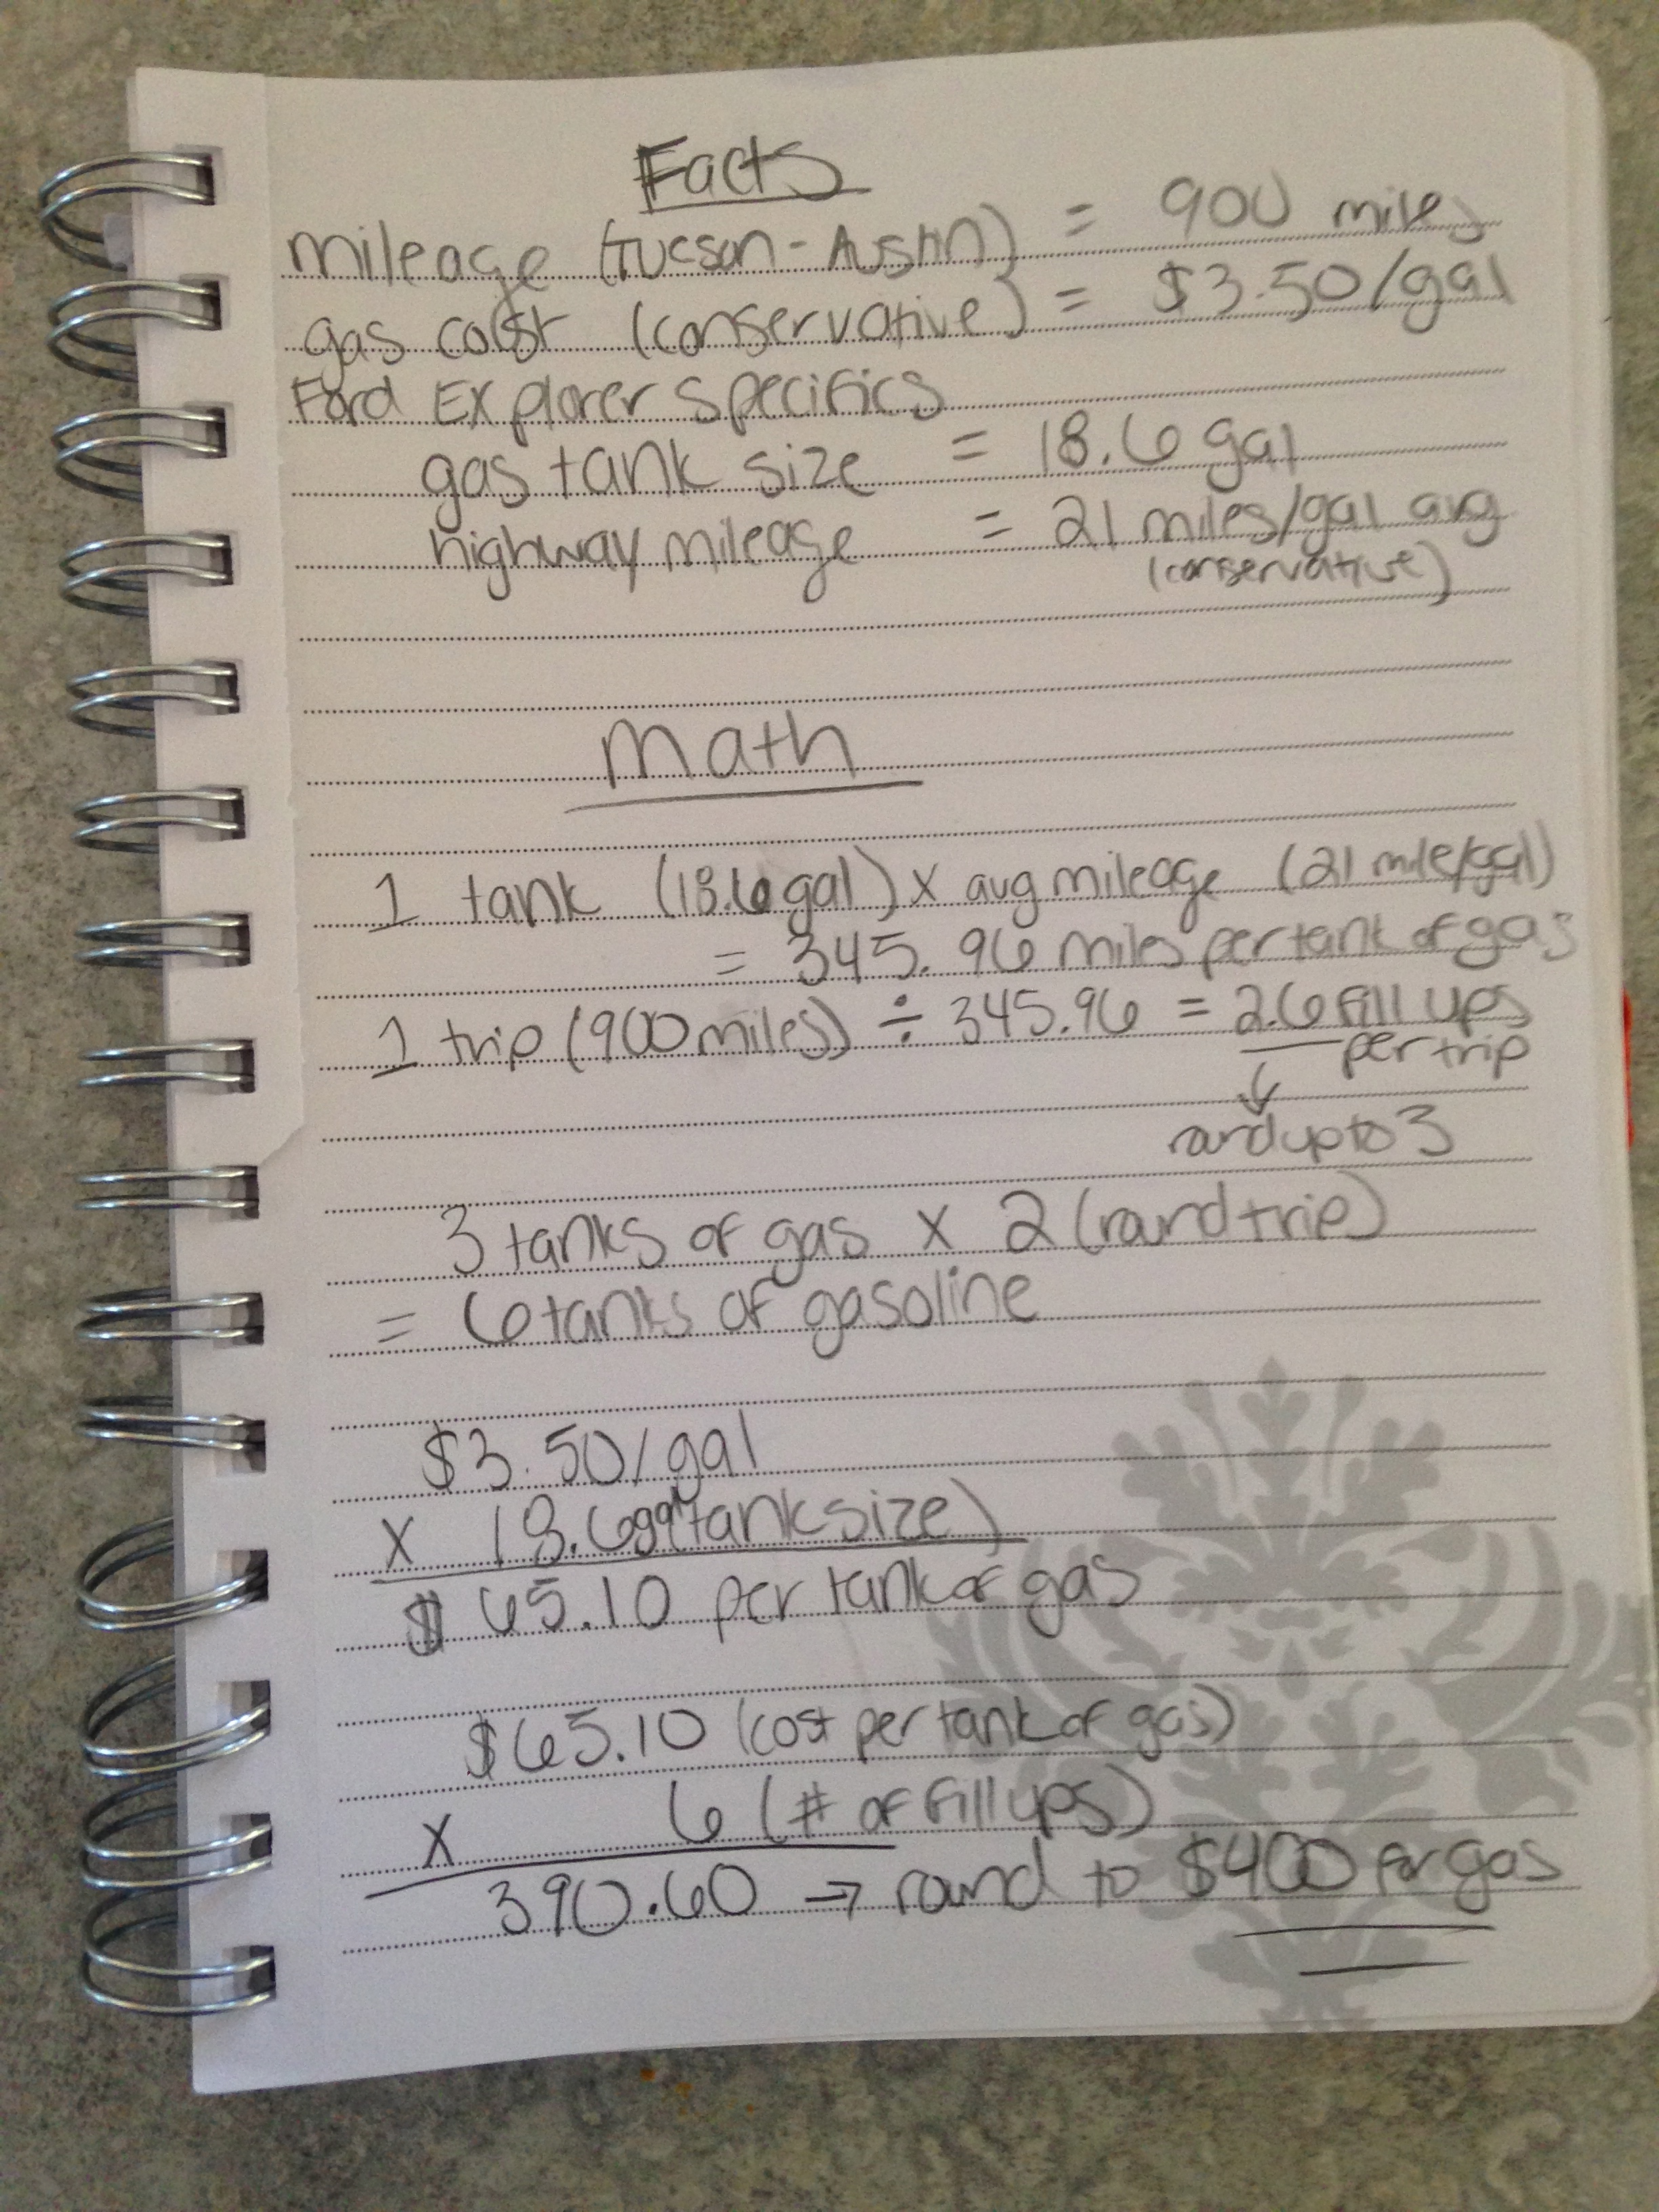 Facts
mileage (Tucson - Austin) = 900 miles
gas cost (conservative) = $3.50/gal
Ford Explorer Specifics
gas tank size = 18.6 gal
highway mileage = 21 miles/gal avg
(conservative)
Math
1 tank (18.6 gal) x avg mileage (21 mile/gal)
= 345.96 miles per tank of gas
1 trip (900 miles) ÷ 345.96 = 2.6 fill ups
per trip
round up to 3
3 tanks of gas x 2 (round trip)
= 6 tanks of gasoline
$3.50/gal
x 18.6 gal (tank size)
$65.10 per tank of gas
$65.10 (cost per tank of gas)
x 6 (# of fill ups)
390.60 → round to $400 for gas